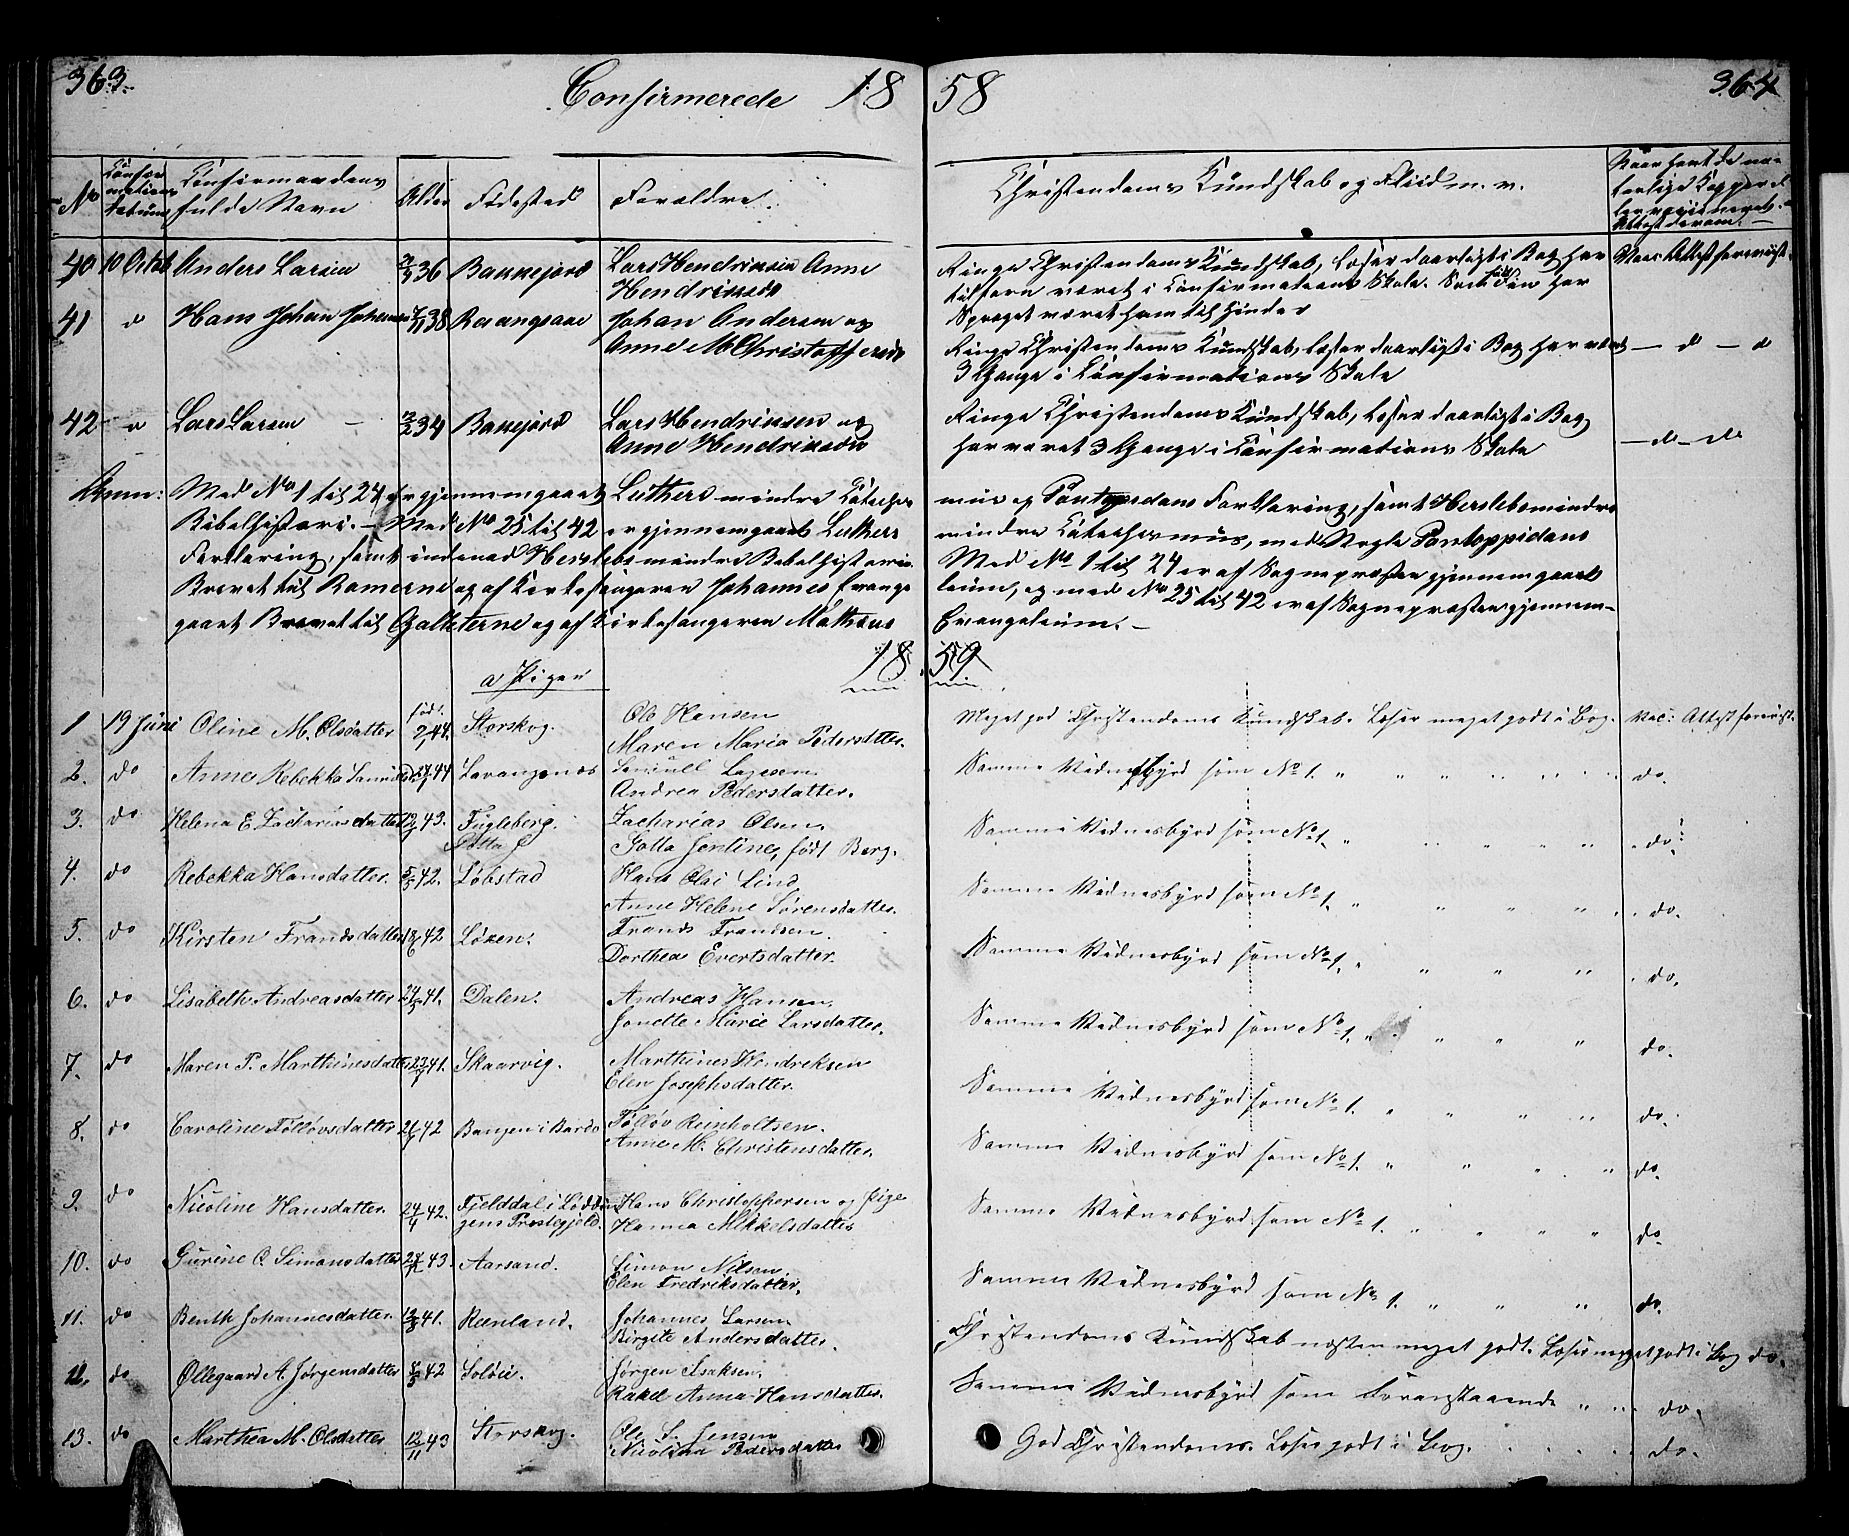 363.
Confirmerede 18
58
364
No
Confirmationens datum
Confirmandens fulde Navn
Alder
Fødested
Forældre.
Christendoms Kundskab og Fliid m. v.
Naar havt de naturlige Kopper eller vaccineret. Attest derom.
40 10 Octob Anders Larsen 36 Bakkejord Lars Hendriksen Anne
Hendriksdr
Ringe Christendoms Kundskab, læser daarligt i Bog har
tilforn været i Confirmations Skole.
Sproget været ham til Hinder
Vacc: Attest foreviist.
41 do Hans Johan Johansen 38 Raangsaae Johan Andersen og
Anne M Christoffersdr
Ringe Christendoms Kundskab, læser daarligt i Bog har været
3 Gange i Confirmations Skole
— d — o
42 — do Lars Larsen — 34 Bakkejord Lars Hendriksen og
Anne Hendriksdr
Ringe Christendoms Kundskab, læser daarligt i Bog
har været 3 Gange i Confirmations Skole
— do — do
Anm: Med No 1 til 24 er gjennemgaaet Luthers mindre Catechismus og Pontoppidans Forklaring, samt Herslebs mindre
Bibelhistori. — Med No 25 til 42 er gjennemgaaet Luthers mindre Catechismus, med Nogle Pontoppidans
Forklaring, samt indenad Herslebs mindre Bibelhistorie. Med No 1 til 24 er af Sognepræsten gjennemgaaet
Brevet til Romerne og af Kirkesangeren Johannes Evangeleum, og med No 25 til 42 er af Sognepræsten gjennem-
gaaet Brevet til Galaterne og af Kirkesangeren Mathæus Evangelium. —
18 59
a Piger
1 19 Juni Oline M. Olsdatter født 44. Storskog. Ole Hansen
Maren Maria Pedersdatter.
Meget god Christendoms Kundskab. Læser meget godt i Bog. Vac: Attest foreviist.
2. do Anne Rebekka 44 Lavangenæs
Andrea Pedersdatter.
Samme Vidnesbyrd som No 1. " " " do.
3. do Helena E. Zachariasdatter 43. Fugleberg. Zacharias Olsen.
Gotta Jentine, født Berg.
Samme Vidnesbyrd som No 1. " " " do.
4. do Rebekka Hansdatter. 42. Løbstad Hans Olai Lind
Anne Helene Sørensdatter.
Samme Vidnesbyrd som No 1. " " " do.
5. do Kirsten Frandsdatter 42 Løxen. Frands Frandsen.
Dorthea Evertsdatter.
Samme Vidnesbyrd som No 1. " " " do.
6. do Lisabeth Andreasdatter 41. Dalen. Andreas Hansen.
Jonette Marie Larsdatter.
Samme Vidnesbyrd som No 1. " " " do.
7. do Maren P. Marthinesdatter 41. Skaarvig. Marthines Hendreksen
Elen Josephsdatter.
Samme Vidnesbyrd som No 1. " " " do.
8. do Caroline Tølløvsdatter 42 Bangen i Bardo Tølløv Reinholtsen.
Anne M. Christensdatter.
Samme Vidnesbyrd som No 1. " " " do.
9. do Nicoline Hansdatter. 42. Fjelddal i Løddin-
gens Prestegjeld. Hans Christophersen og Pige
Hanna Mikkelsdatter
Samme Vidnesbyrd som No 1. " " " do.
10. do Gurine O. Simonsdatter 43. Aarsand. Simon Nilsen.
Elen Fredriksdatter.
Samme Vidnesbyrd som No 1. " " " do.
11. do Benth Johannesdatter. 41. Reenland. Johannes Larsen.
Birgite Andersdatter.
Christendoms Kundskab næsten meget godt. Læser meget godt i Bog do.
12. do Øllegaard A. Jørgensdatter 42 Soløie. Jørgen Isaksen.
Rakel Anna Hansdatter.
Samme Vidnesbyrd som Foranstaaende " " do.
13. do Marthea M. Olsdatter 12/11 43 Storskog. Ole S. Jensen
Nicolina Pedersdatter
God Christendoms. Læser godt i Bog. do.